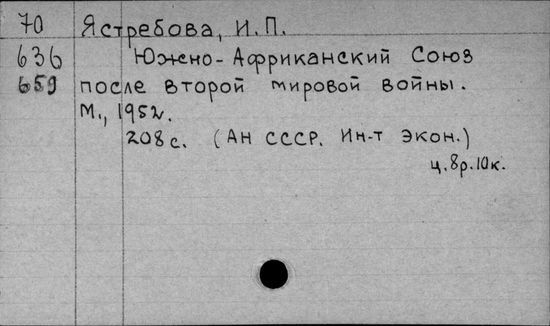 70 Ястребова, И.П.
636 Южно-Африканский Союз
659 после второй мировой войны.
М., 1952.
208 с. (АН СССР. Ин-т экон.)
ц. 8р. 10к.